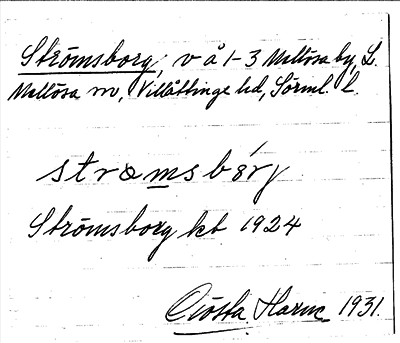 Strömsborg, v å 1-3 Mellösa by, L.
Mellösa sn, Villåttinge hd, Sörml. l.
strœmsbórj
Strömsborg kbt 1924
Gösta Harne 1931.